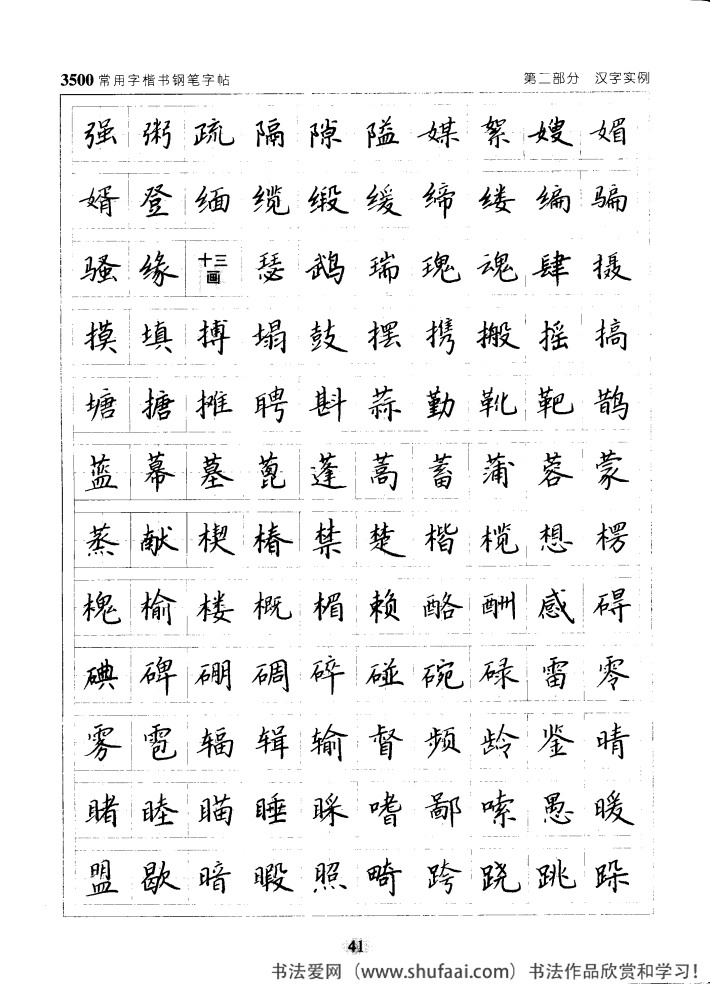 3500常用字楷书钢笔字帖 第二部分 汉字实例
强 粥 疏 隔 隙 隘 媒 絮 嫂 媚
婿 登 缅 缆 缎 缓 缔 缕 编 骗
骚 缘 十三画 瑟 鹉 瑞 瑰 魂 肆 摄
摸 填 搏 塌 鼓 摆 携 搬 摇 搞
塘 搪 摊 聘 斟 蒜 勤 靴 靶 鹊
蓝 幕 墓 蓖 蓬 蒿 蓄 蒲 蓉 蒙
蒸 献 楔 椿 禁 楚 楷 榄 想 楞
槐 榆 楼 概 楣 赖 酪 酬 感 碍
碘 碑 硼 碉 碎 碰 碗 碌 雷 零
雾 雹 辐 辑 输 督 频 龄 鉴 晴
睹 睦 瞄 睡 睬 嗜 鄙 嗦 愚 暖
盟 歇 暗 暇 照 畸 跨 跷 跳 跺
41
书法爱网（www.shufaai.com）书法作品欣赏和学习！